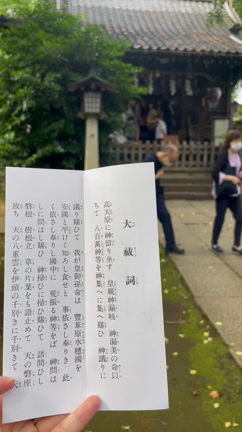 大祓詞
高天原に神留り坐す 皇親神漏岐 神漏美の命以
ちて 八百萬神等を神集へに集へ賜ひ 神議りに
議り賜ひて 我が皇御孫命は 豐葦原水穗國を
安國と平けく知ろし食せと 事依さし奉りき 此
く依さし奉りし國中に 荒振る神等をば 神問は
しに問はし賜ひ 神掃ひに掃ひ賜ひて 語問ひし
磐根 樹根立 草の片葉をも語止めて 天の磐座
放ち 天の八重雲を伊頭の千別きに千別きて 天